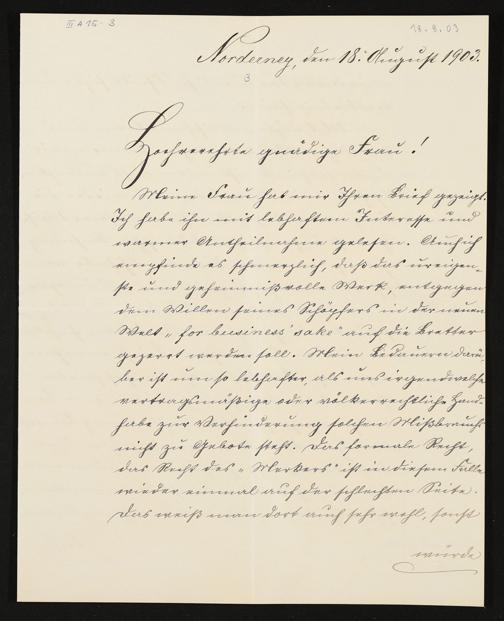 III A 15 - 3
18.8.03
Norderney, den 18. August 1903.
3
Hochverehrte gnädige Frau!
Meine Frau hat mir Ihren Brief gezeigt.
Ich habe ihn mit lebhaftem Interesse und
warmer Antheilnahme gelesen. Auch ich
empfinde es schmerzlich, daß das ureigen-
ste und geheimnißvolle Werk, entgegen
dem Willen seines Schöpfers in der neuen
Welt „for business' sake" auf die Bretter
gezerrt werden soll. Mein Bedauern darü-
ber ist um so lebhafter, als uns irgendwelche
vertragsmäßige oder völkerrechtliche Hand-
habe zur Verhinderung solchen Mißbrauchs
nicht zu Gebote steht. Das formale Recht,
das Recht des „Merkers" ist in diesem Falle
wieder einmal auf der schlechten Seite.
Das weiß man dort auch sehr wohl, sonst
würde